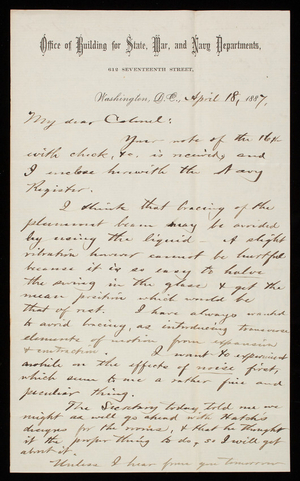 Office of Building for State, War, and Navy Departments,
612 SEVENTEENTH STREET,
Washington, D.C., April 18, 1887.
My dear Colonel:
Your note of the 16th
with check, &c. is received, and
I enclose herewith the Navy
Register.
I think that bracing of the
beam may be avoided
by using the liquid. A slight
vibration cannot be hurtful
because it is so easy to halve
the swing in the glass & get the
mean position which would be
that of rest. I have always wanted
to avoid bracing, as introducing
elements of motion from expansion
& contraction. I want to experiment
awhile on the effects of noise first,
which seem to me a rather fine and
peculiar thing.
The Secretary today told me we
might as well go ahead with
designs for the , & that he thought
it the proper thing to do, so I will get
about it.
Unless I hear from you tomorrow